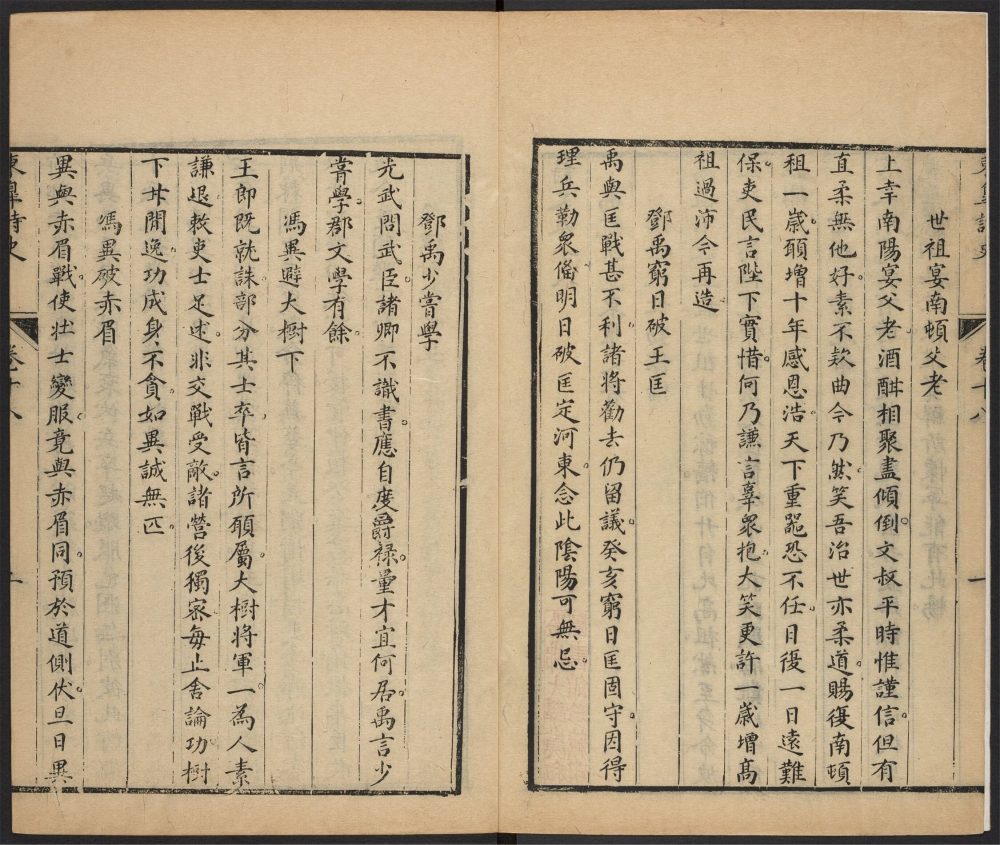 東臯詩史 卷十八 一
世祖宴南頓父老
上幸南陽宴父老酒酣相聚盡傾倒文叔平時惟謹信但有
直柔無他好素不欵曲今乃然笑吾治世亦柔道賜復南頓
租一歲頭增十年感恩浩天下重噐恐不任日復一日遠難
保吏民言陛下實惜何乃謙言辜衆抱大笑更許一歲增髙
祖過沛今再造
鄧禹窮日破王匡
禹與匡戰甚不利諸將勸去仍留議癸亥窮日匡固守因得
理兵勒衆俻明日破匡定河東念此隂陽可無忌
鄧禹少嘗學
光武問武臣諸卿不識書應自度爵禄量才宜何居禹言少
嘗學郡文學有餘
馮異避大樹下
王郎既就誅部分其士卒皆言所願屬大樹將軍一為人素
謙退敕吏士足述非交戰受敵諸營後獨家每止舍論功樹
下井閒逸功成身不貪如異誠無匹
馮異破赤眉
異與赤眉戰使壮士變服竟與赤眉同預於道側伏旦日異
東臯詩史 卷十八